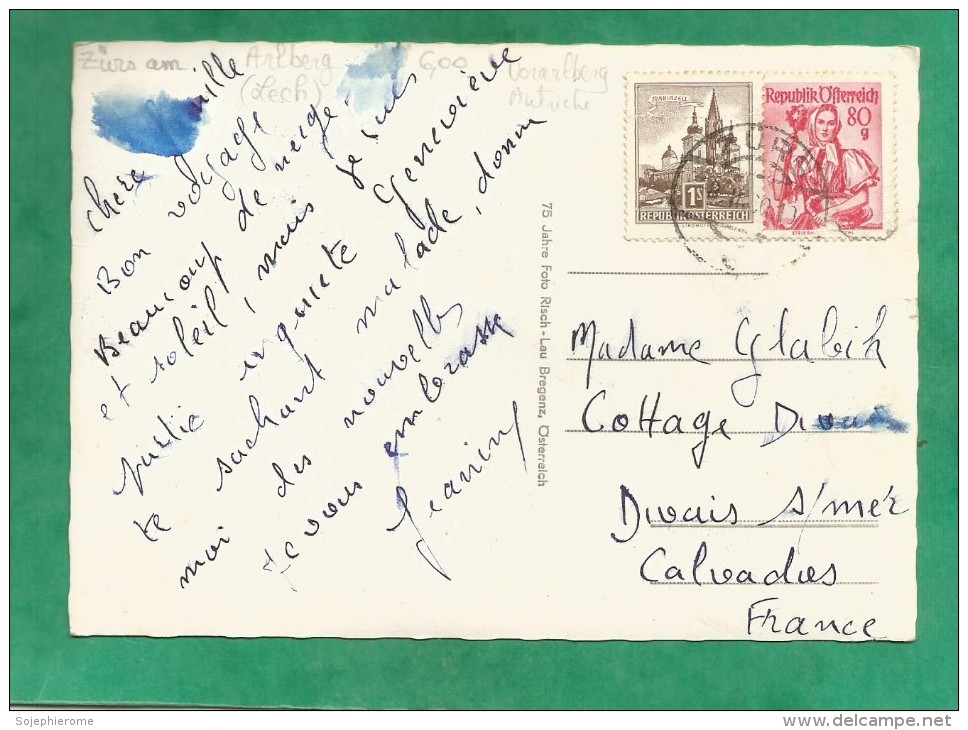 Zürs am Arlberg 6,00 Vorarlberg
(Lech) Autriche
Chère famille
Bon voyage
Beaucoup de neige
et soleil, mais je suis
inquiète Genevieve
te sachant malade, donne
moi des nouvelles
je vous embrasse
Jeanine
75 Jahre Foto Risch-Lau Bregenz, Österreich
MARIAZELL
1S
REPUBLIK ÖSTERREICH
Republik Österreich
80
g
Madame Glabik
Cottage
Divais s/mer
Calvados
France
Sojephierome
www.delcampe.net